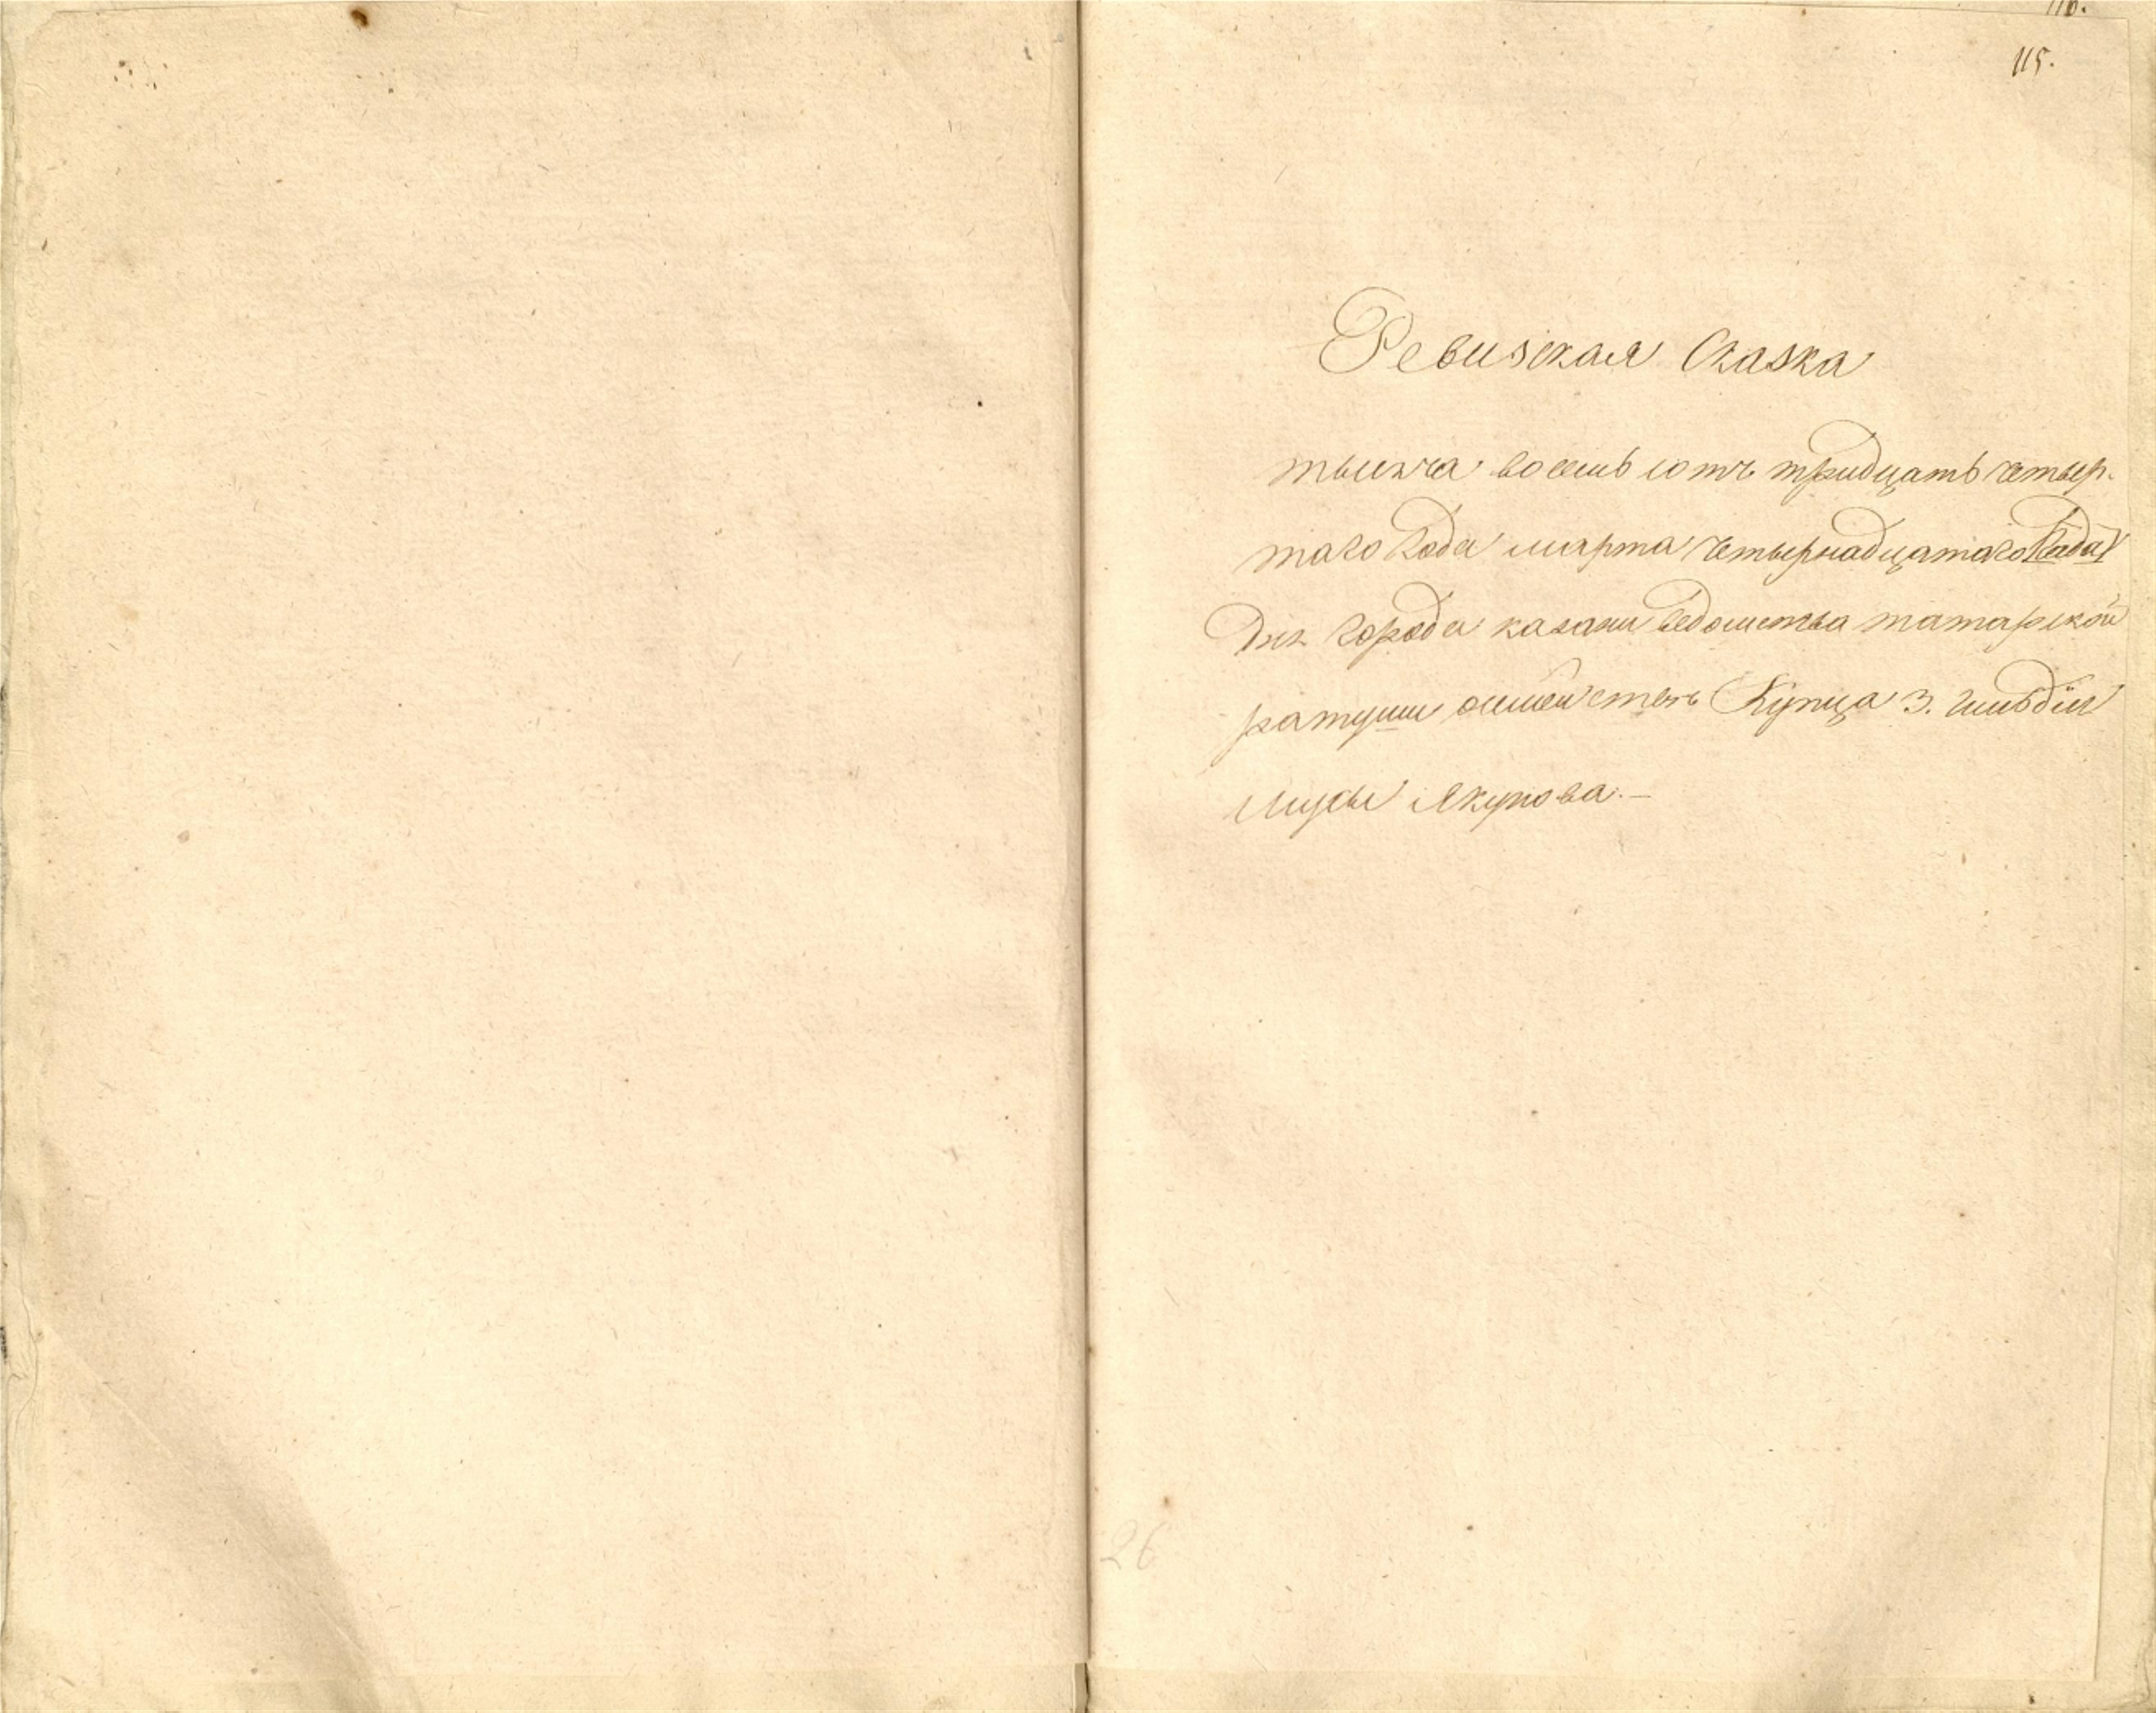 116.
115.
Ревизская Сказка
тысяча восемь сотъ тридцать четвер-
таго Года марта четырнатцатаго Года
Дня Города казани ведомства татарской
ратуши Купца 3. гильдіи
Мусы Якупова.—
26